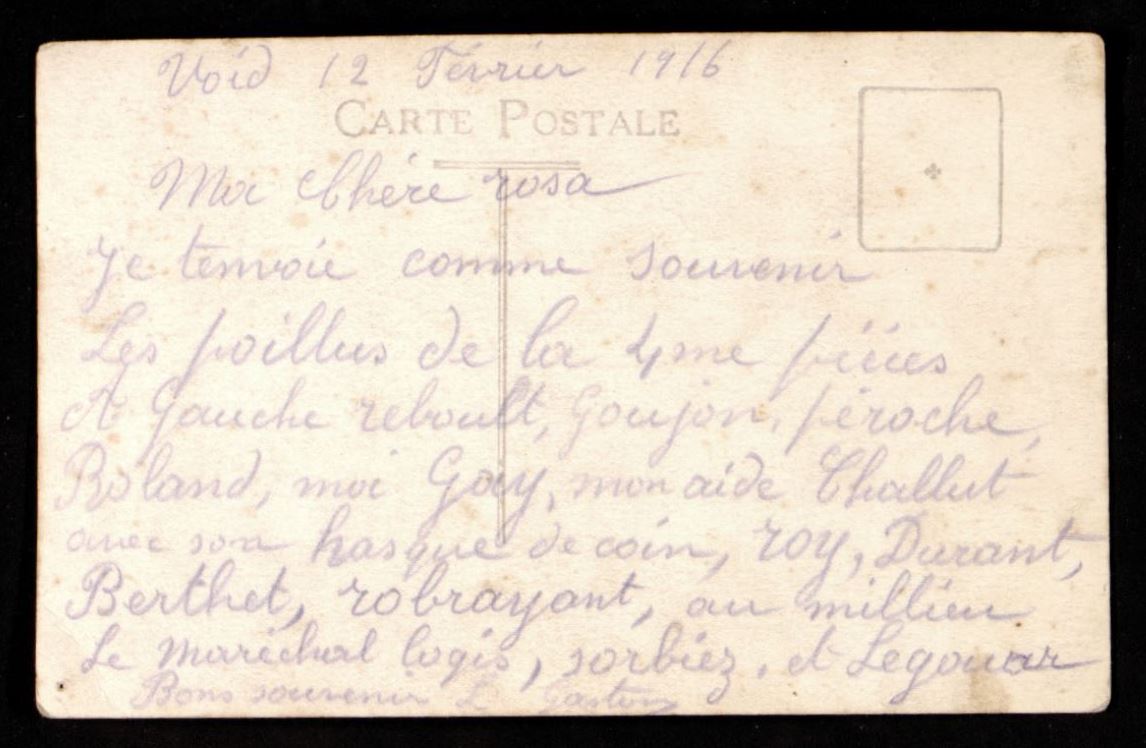 Void 12 Février 1916
CARTE POSTALE
Ma Chère rosa
Je tenvoie comme souvenir
Les poillus de la 4me pièces
A Gauche reboult, Goujon, péroche,
Roland, moi Gay, mon aide Challut
avec son kasque de coin, roy, Durant,
Berthet, robrayant, au millieu
Le maréchal logis, sorbiez, et Legouar
Bons souvenir L. Gaston